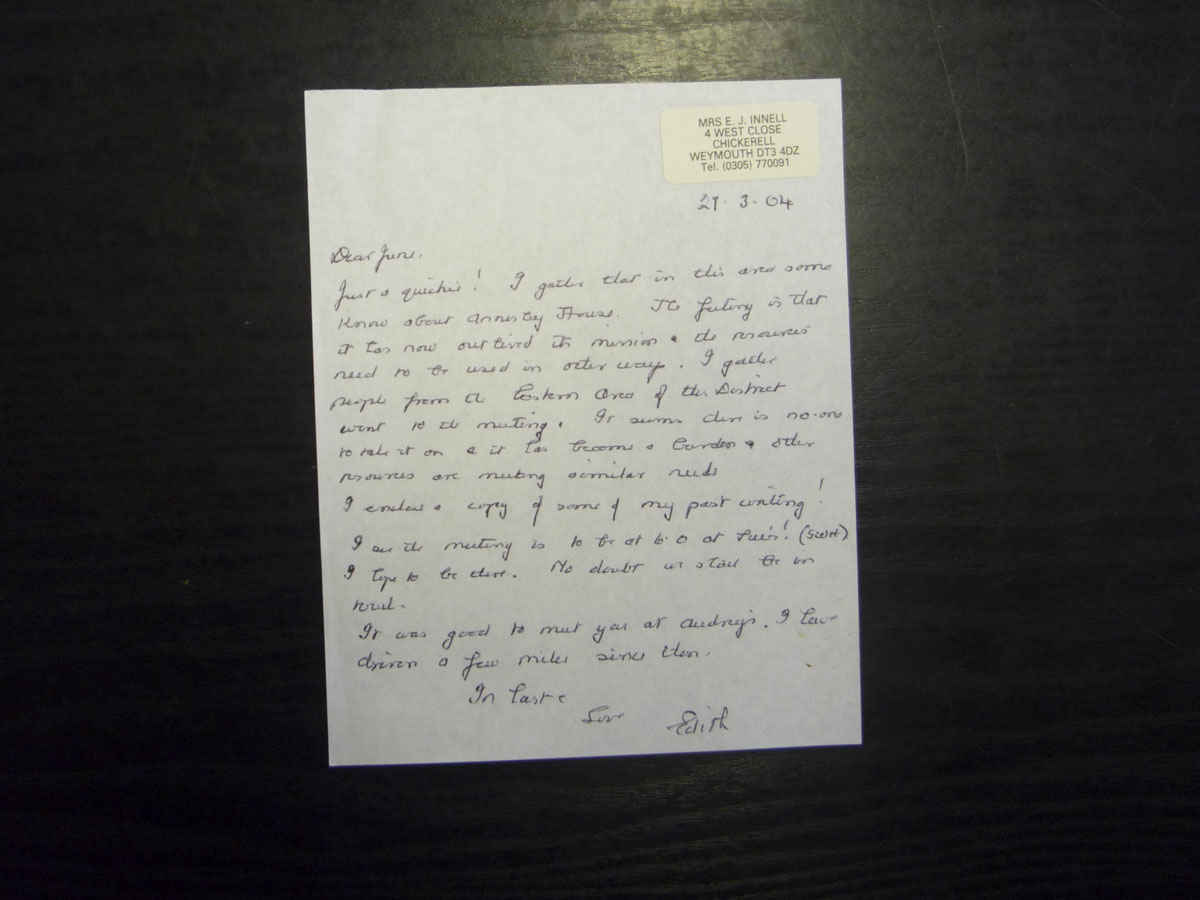 MRS E. J. INNELL
4 WEST CLOSE
CHICKERELL
WEYMOUTH DT3 4DZ
Tel. (0305) 770091
29. 3. 04
Dear June.
Just a quickie! I gather that in this area some
know about Annesley House. The feeling is that
it has now outlived its mission & the resources
need to be used in other ways. I gather
people from the Eastern Area of the District
went to the meeting. It seems there is no-one
to take it on & it has become a burden & other
resources are meeting similar needs
I enclose a copy of some of my past writing!
I see the meeting is to be at 6.0 at (SWH)
I hope to be there. No doubt we shall be in
touch.
It was good to meet you at Audrey's. I have
driven a few miles since then.
In haste
Love Edith